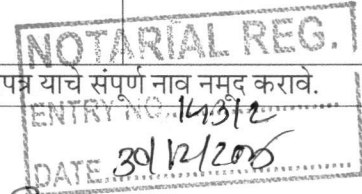 NOTARIAL REG.
पत्र याचे संपूर्ण नाव नमूद करावे.
ENTRY NO. 14312
DATE 30/12/2025